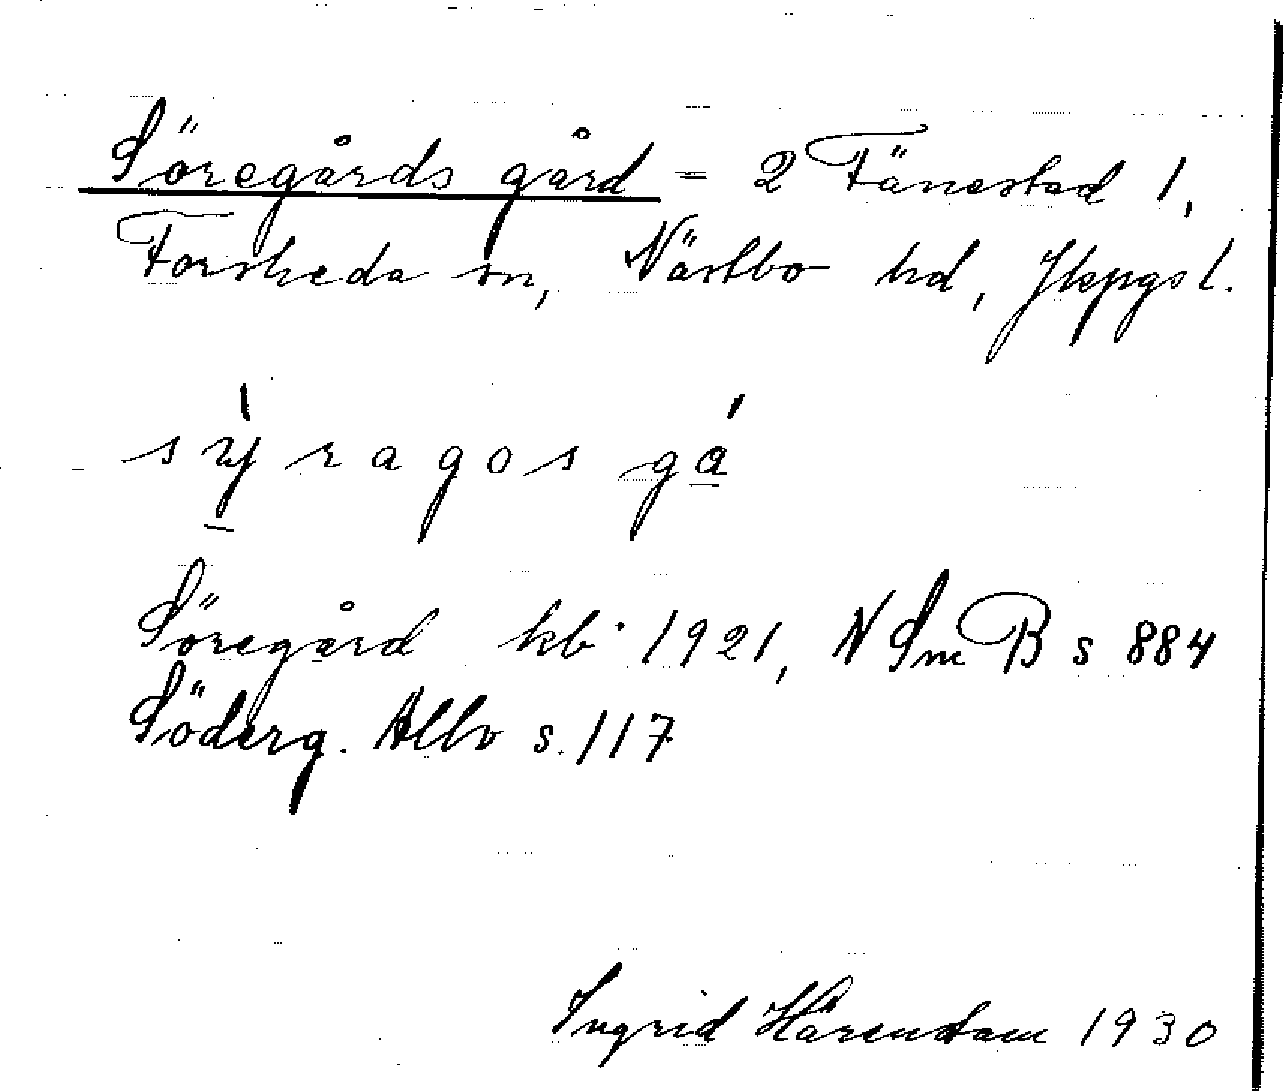 Söregårds gård = 2 Fänestad 1,
Forsheda sn, Västbo hd, Jkpgs l.
sýragos gá
Söregård kb 1921, N Sm B s 884
Söderg. Allbo s. 117
Ingrid Härenstam 1930